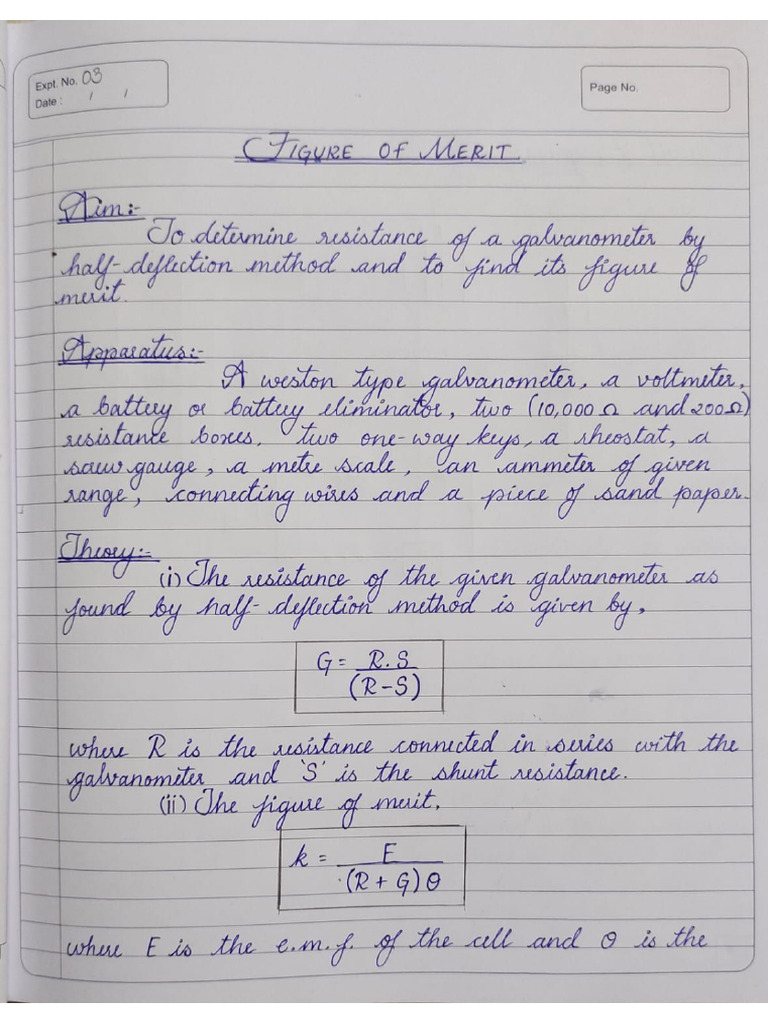 Expt. No. 03
Date : / /
Page No.
FIGURE OF MERIT
Aim:-
To determine resistance of a galvanometer by
half-deflection method and to find its figure of
merit.
Apparatus:-
A weston type galvanometer, a voltmeter,
a battery or battery eliminator, two (10,000 Ω and 200Ω)
resistance boxes, two one-way keys, a rheostat, a
screw gauge, a metre scale, an ammeter of given
range, connecting wires and a piece of sand paper.
Theory:-
(i) The resistance of the given galvanometer as
found by half-deflection method is given by,
G = R.S
(R-S)
where R is the resistance connected in series with the
galvanometer and 'S' is the shunt resistance.
(ii) The figure of merit,
k = E
(R + G) θ
where E is the e.m.f. of the cell and θ is the